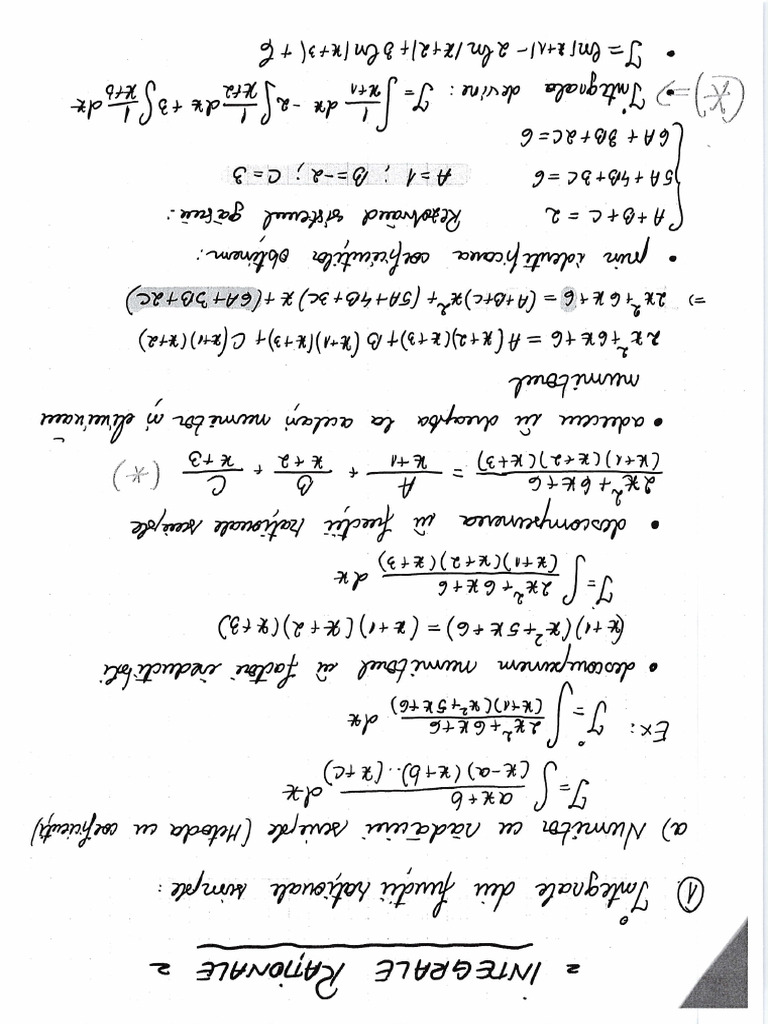 = INTEGRALE RAȚIONALE =
① Integrale din funcții raționale simple :
a) Numitor cu rădăcini simple (Metoda cu coeficienți)
I = ∫ (ax+b)/((x-a)(x+b)...(x+c)) dx
Ex: I = ∫ (2x²+6x+6)/((x+1)(x²+5x+6)) dx
• descompunem numitorul în factori ireductibili
(x+1)(x²+5x+6) = (x+1)(x+2)(x+3)
I = ∫ (2x²+6x+6)/((x+1)(x+2)(x+3)) dx
• descompunerea în funcții raționale simple
(2x²+6x+6)/((x+1)(x+2)(x+3)) = A/(x+1) + B/(x+2) + C/(x+3) (*)
• aducem în dreapta la același numitor și eliminăm
numitorul
2x²+6x+6 = A(x+2)(x+3) + B(x+1)(x+3) + C(x+1)(x+2)
=> 2x²+6x+6 = (A+B+C)x² + (5A+4B+3C)x + (6A+3B+2C)
• prin identificarea coeficienților obținem:
{ A+B+C = 2 Rezolvând sistemul găsim:
5A+4B+3C = 6 A = 1 ; B = -2 ; C = 3
6A+3B+2C = 6
(*) => • Integrala devine : I = ∫ 1/(x+1) dx - 2∫ 1/(x+2) dx + 3∫ 1/(x+3) dx
• I = ln|x+1| - 2 ln|x+2| + 3 ln|x+3| + C